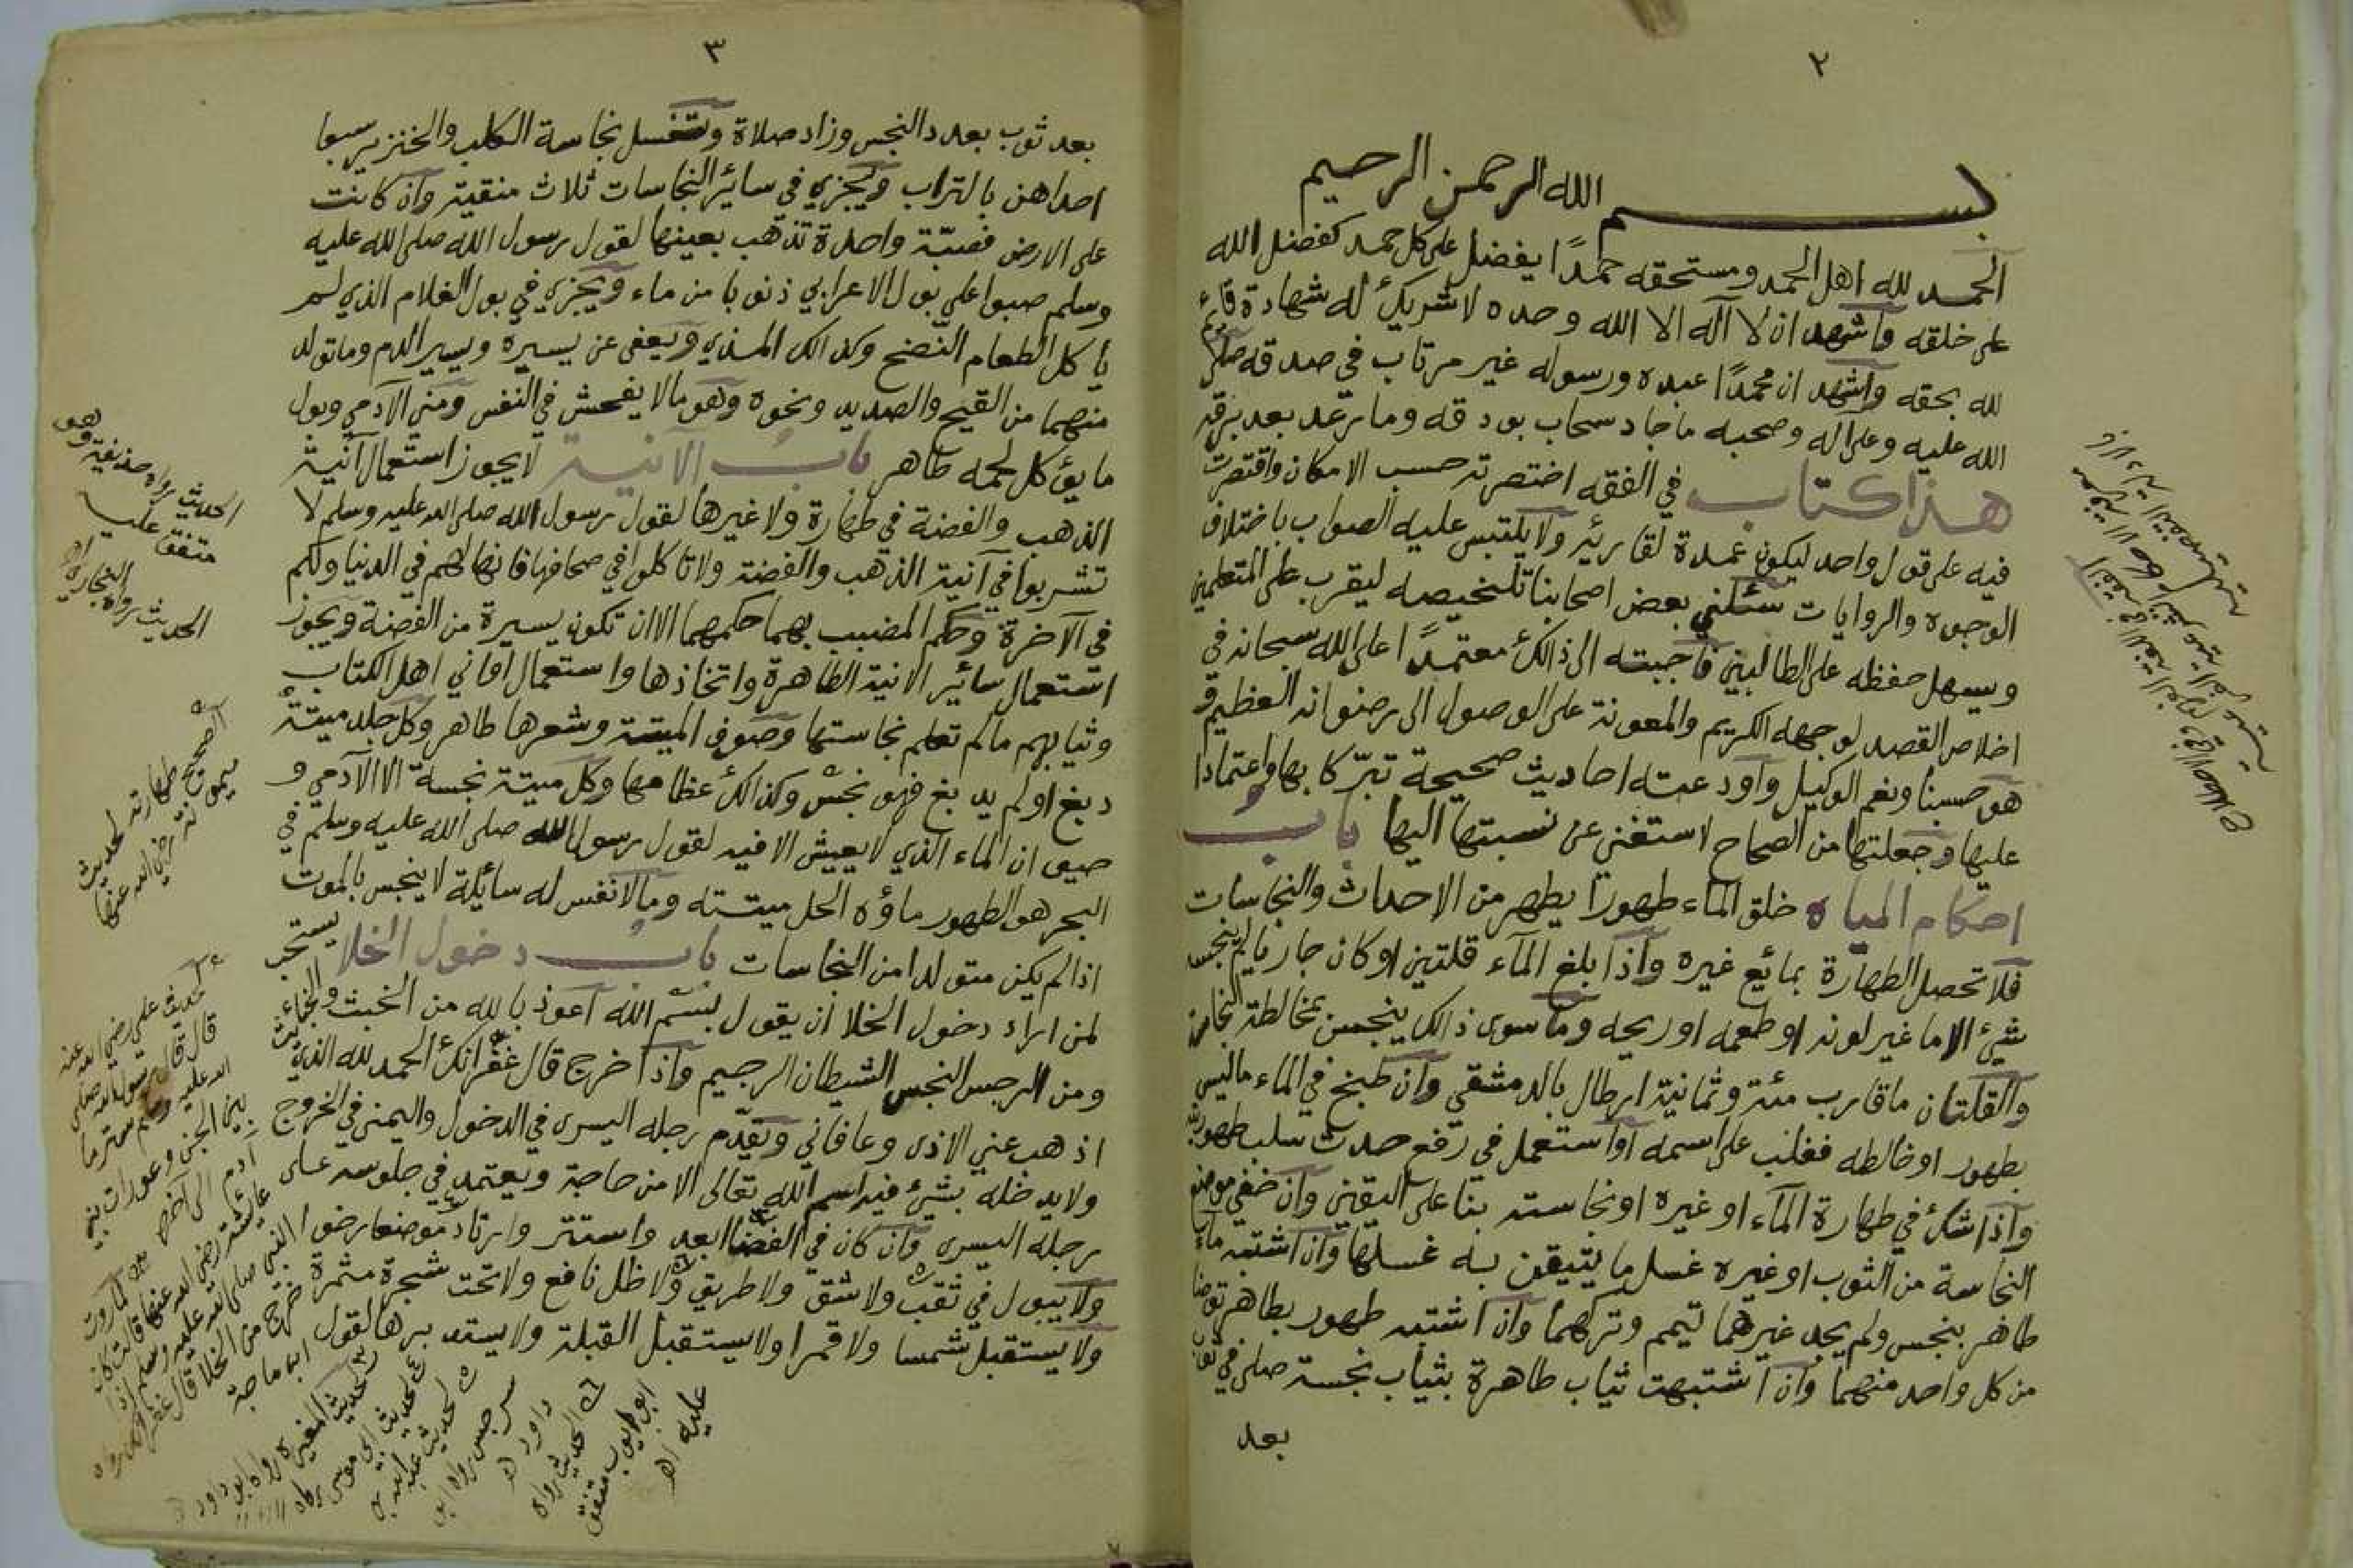 ٢
بســـــــم الله الرحمن الرحيم
الحمد لله اهل الحمد ومستحقه حمدًا يفضل على كل حمد كفضل الله
على خلقه وأشهد ان لا اله الا الله وحده لا شريك له شهادة قائم
لله بحقه وأشهد ان محمدًا عبده ورسوله غير مرتاب في صدقه صلى
الله عليه وعلى اله وصحبه ما جاد سحاب بودقه وما رعد بعد برقه
هذا كتاب في الفقه اختصرته حسب الامكان واقتصرت
فيه على قول واحد ليكون عمدة لقارئه ولا يلتبس عليه الصواب باختلاف
الوجوه والروايات سئلني بعض اصحابنا تلخيصه ليقرب على المتعلمين
ويسهل حفظه على الطالبين فأجبته الى ذالك معتمدًا على الله سبحانه في
اخلاص القصد لوجهه الكريم والمعونة على الوصول الى رضوانه العظيم و
هو حسبنا ونعم الوكيل وأودعته احاديث صحيحة تبركا بها واعتمادا
عليها وجعلتها من الصحاح لاستغني عن نسبتها اليها باب
احكام المياه خلق الماء طهورا يطهر من الاحداث والنجاسات
فلا تحصل الطهارة بمائع غيره وأذا بلغ المآء قلتين او كان جاريا لم ينجسه
شئ الا ما غير لونه او طعمه او ريحه وما سوى ذالك ينجس بمخالطة النجاسة
والقلتان ما قارب مئة وثمانية ارطال بالدمشقي وأن طبخ في الماء ما ليس
بطهور او خالطه فغلب على اسمه أو استعمل في رفع حدث سلب طهوريته
وأذا شك في طهارة المآء او غيره او نجاسته بنا على اليقين وأن خفي موضع
النجاسة من الثوب او غيره غسل ما يتيقن به غسلها وأن اشتبه ماء
طاهر بنجس ولم يجد غيرهما تيمم وتركهما وان اشتبه طهور بطاهر توضا
من كل واحد منهما وأن اشتبهت ثياب طاهرة بثياب نجسة صلى في ثوب
بعد
٣
بعد ثوب بعدد النجس وزاد صلاة وتغسل نجاسة الكلب والخنزير سبعا
احداهن بالتراب ويجزي في سائر النجاسات ثلاث منقية وأن كانت
على الارض فصبّة واحدة تذهب بعينها لقول رسول الله صلى الله عليه
وسلم صبوا على بول الاعرابي ذنوبا من ماء ويجزي في بول الغلام الذي لم
يأكل الطعام النضح وكذالك المذي ويعفى عن يسيره ويسير الدم وما تولد
منهما من القيح والصديد ونحوه وهو ما لا يفحش في النفس ومني الآدمي وبول
ما يؤكل لحمه طاهر باب الآنية لا يجوز استعمال آنية
الذهب والفضة في طهارة ولا غيرها لقول رسول الله صلى الله عليه وسلم لا
تشربوا في آنية الذهب والفضة ولا تاكلوا في صحافها فانها لهم في الدنيا ولكم
في الآخرة وحكم المضبب بهما حكمهما الا ان تكون يسيرة من الفضة ويجوز
استعمال سائر الانية الطاهرة واتخاذها واستعمال اواني اهل الكتاب
وثيابهم مالم تعلم نجاستها وصوف الميتة وشعرها طاهر وكل جلد ميتة
دبغ او لم يدبغ فهو نجس وكذالك عظامها وكل ميتة نجسة الا الآدمي و
حيوان الماء الذي لا يعيش الا فيه لقول رسول الله صلى الله عليه وسلم في
البحر هو الطهور ماؤه الحل ميتته وما لا نفس له سائلة لا ينجس بالموت
اذا لم يكن متولدا من النجاسات باب دخول الخلا يستحب
لمن اراد دخول الخلا ان يقول بسم الله أعوذ بالله من الخبث والخبائث
ومن الرجس النجس الشيطان الرجيم وأذا خرج قال غفرانك الحمد لله الذي
اذهب عني الاذى وعافاني ويقدم رجله اليسرى في الدخول واليمنى في الخروج
ولا يدخله بشئ فيه اسم الله تعالى الا من حاجة ويعتمد في جلوسه على
رجله اليسرى وأن كان في الفضا ابعد واستتر وارتاد موضعا رخوا
ولا يبول في ثقب ولا شق ولا طريق ولا ظل نافع ولا تحت شجرة مثمرة
ولا يستقبل شمسا ولا قمرا ولا يستقبل القبلة ولا يستدبرها لقول
الحديث رواه حذيفة وهو
متفق عليه
الحديث رواه البخاري اهـ
الصحيح طهارته لحديث
ميمونة رضي الله عنها
لحديث علي رضي الله عنه
قال قال رسول الله صلى
الله عليه وسلم ستر ما
بين الجن وعورات بني
آدم الى اخره
لما روت
عائشة رضي الله عنها قالت كان
النبي صلى الله عليه وسلم اذا
خرج من الخلا قال غفرانك رواه
ابن ماجة
لحديث المغيرة رواه ابو داود
لحديث ابي موسى رواه
لحديث عبد الله بن
سرجس رواه ابو
داود
الحديث رواه
ابو ايوب متفق
عليه اهـ